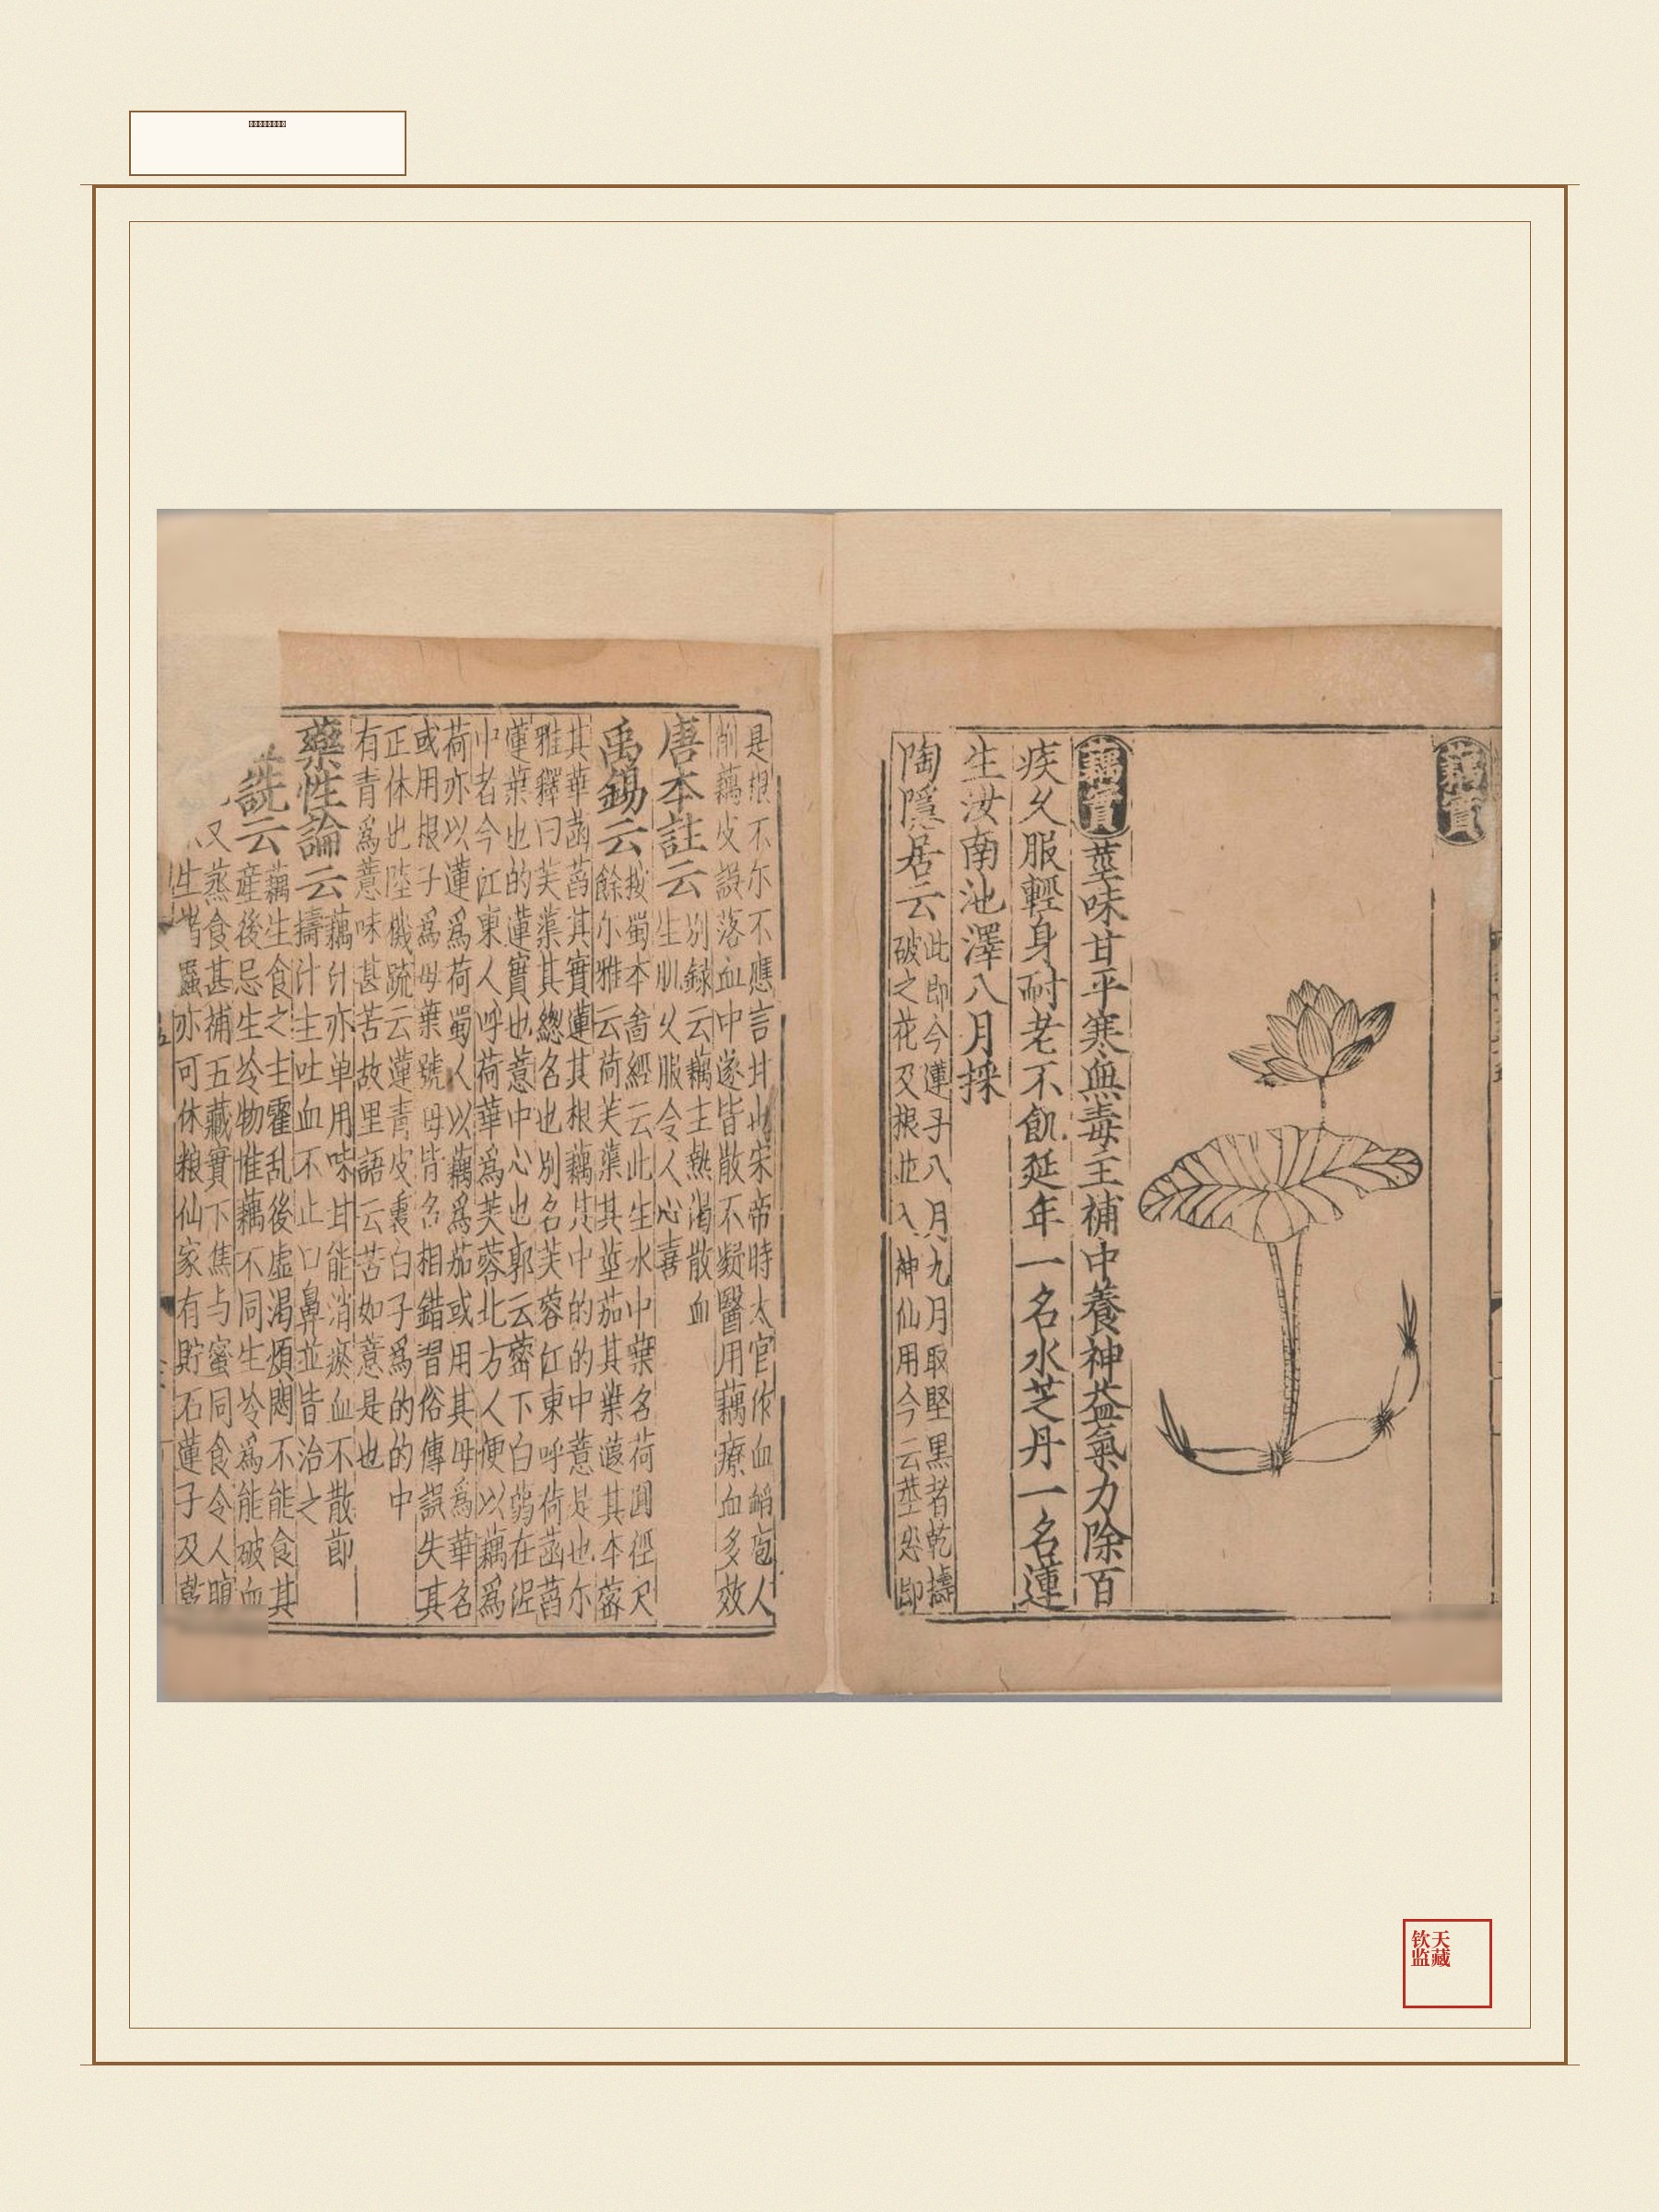 藕實
藕實莖味甘平寒無毒主補中養神益氣力除百
疾久服輕身耐老不飢延年一名水芝丹一名蓮
生汝南池澤八月採
陶隱居云此即今蓮子八月九月取堅黑者乾擣
破之花及根並入神仙用今云莖恐即
是根不尔不應言甘也宋帝時太官作血䘓庖人
削藕皮誤落血中遂皆散不凝醫用藕療血多效
唐本註云別録云藕主熱渴散血
生肌久服令人心喜
禹錫云按蜀本啚經云此生水中葉名荷圓徑尺
餘尔雅云荷芙蕖其莖茄其葉蕸其本蔤
其華菡萏其實蓮其根藕其中的的中薏是也尔
雅釋曰芙蕖其總名也別名芙蓉江東呼荷菡萏
蓮葉也的蓮實也薏中心也郭云蔤下白蒻在泥
中者今江東人呼荷華爲芙蓉北方人便以藕爲
荷亦以蓮爲荷蜀人以藕爲茄或用其母爲華名
或用根子爲母葉號母皆名相錯習俗傳誤失其
正体也陸機疏云蓮青皮裏白子爲的的中
有青爲薏味甚苦故里語云苦如薏是也
藥性論云藕汁亦单用味甘能消瘀血不散節
擣汁主吐血不止口鼻並皆治之
詵云藕生食之主霍乱後虛渴煩悶不能食其
産後忌生冷物惟藕不同生冷爲能破血
又蒸食甚補五藏實下焦与蜜同食令人腹
生蟲亦可休粮仙家有貯石蓮子及乾
钦天
监藏